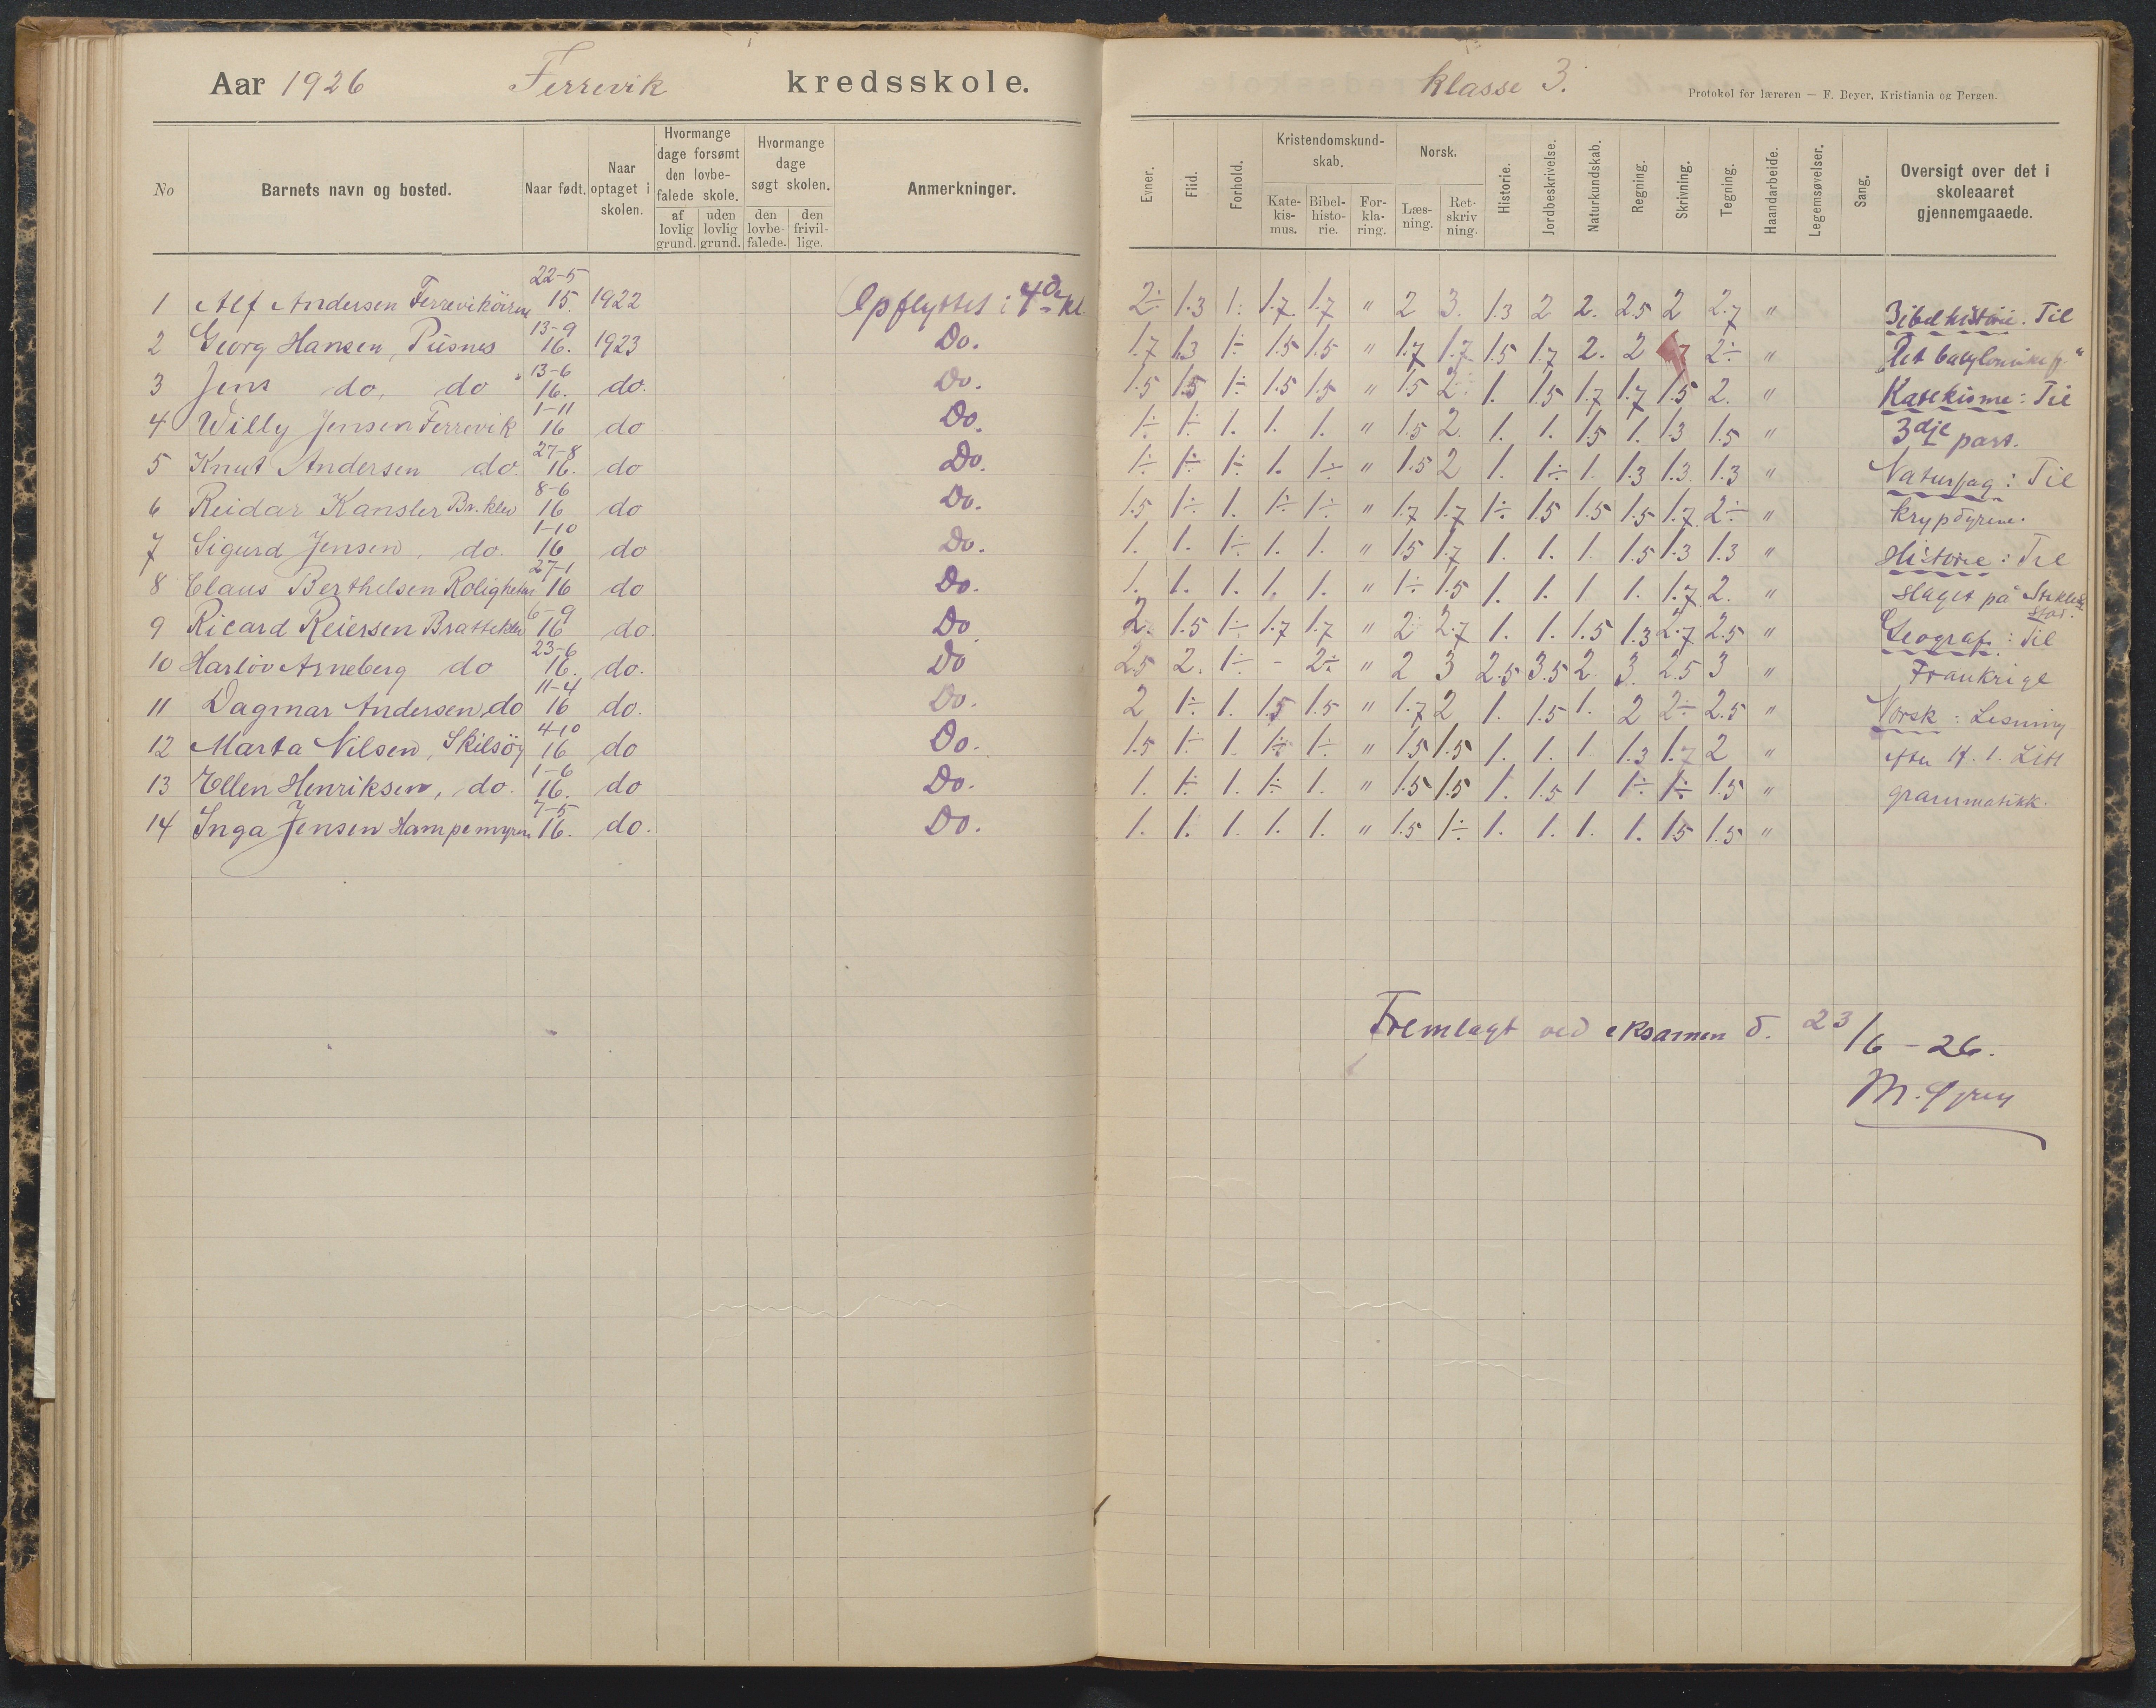 Aar 1926 Ferrevik kredsskole.
klasse 3.
Protokol for læreren — F. Beyer, Kristiania og Bergen.
No Barnets navn og bosted. Naar født. Naar optaget i skolen. Hvormange dage forsømt den lovbefalede skole. af lovlig grund. uden lovlig grund. Hvormange dage søgt skolen. den lovbefalede. den frivillige. Anmerkninger.
Evner. Flid. Forhold. Kristendomskundskab. Katekismus. Bibelhistorie. Forklaring. Norsk. Læsning. Retskrivning. Historie. Jordbeskrivelse. Naturkundskab. Regning. Skrivning. Tegning. Haandarbeide. Legemsøvelser. Sang. Oversigt over det i skoleaaret gjennemgaaede.
1 Alf Andersen 22-5 15. 1922 Opflyttet i 4de kl. 2÷ 1.3 1. 1.7 1.7 " 2 3. 1.3 2 2. 2.5 2 2.7 "
2 Georg Hansen, Pusnes 13-9 16. 1923 Do. 1.7 1.3 1÷ 1.5 1.5 " 1.7 1.7 1.5 1.7 2. 2 2÷ "
3 Jens do, do 13-6 16. do. Do. 1.5 1.5 1÷ 1.5 1.5 " 1.5 2 1. 1.5 1.7 1.7 1.5 2. "
4 Willy Jensen Ferrevik 1-11 16 do Do. 1÷ 1÷ 1. 1. 1. " 1.5 2. 1. 1. 1.5 1. 1.3 1.5 "
5 Knut Andersen do. 27-8 16. do Do. 1÷ 1÷ 1÷ 1. 1÷ " 1.5 2 1. 1÷ 1. 1.3 1.3 1.3 "
6 Reidar Kansler Br.klev 8-6 16 do Do. 1.5 1÷ 1. 1÷ 1÷ " 1.7 1.7 1÷ 1.5 1.5 1.5 1.7 2÷ "
7 Sigurd Jensen, do. 1-10 16 do Do. 1. 1. 1÷ 1. 1. " 1.5 1.7 1. 1. 1. 1.5 1.3 1.3 "
8 Claus Berthelsen Roligheten 27-1 16 do Do. 1. 1. 1. 1. 1. " 1÷ 1.5 1. 1. 1 1. 1.7 2. "
9 Ricard Reiersen Bratteklev 6-9 16 do. Do 2. 1.5 1÷ 1.7 1.7 " 2 2.7 1. 1. 1.5 1.3 2.7 2.5 "
10 Harløv Arneberg do 23-6 16. do. Do 2.5 2. 1÷ - 2÷ " 2 3 2.5 3.5 2. 3. 2.5 3 "
11 Dagmar Andersen, do 11-4 16 do. Do. 2 1÷ 1. 1.5 1.5 " 1.7 2 1. 1.5 1. 2 2÷ 2.5 "
12 Marta Nilsen, Skilsöy 4-10 16 do Do. 1.5 1÷ 1. 1÷ 1÷ " 1.5 1.5 1. 1. 1 1.3 1.7 2 "
13 Ellen Henriksen, do. 1-6 16. do Do. 1. 1÷ 1. 1÷ 1. " 1.5 1.5 1. 1.5 1 1÷ 1÷ 1.5 "
14 Inga Jensen Hampemyren 7-5 16. do. Do. 1. 1. 1. 1. 1. " 1.5 1÷ 1. 1. 1. 1. 1.5 1.5 "
Bibelhistorie. Til
Katekisme: Til
3dje part.
Naturfag: Til
krypdyrene.
Historie: Til
slaget på Stiklestad.
Geografi: Til
Frankrige
Norsk: Lesning
grammatikk.
Fremlagt ved eksamen d. 23/6-26.